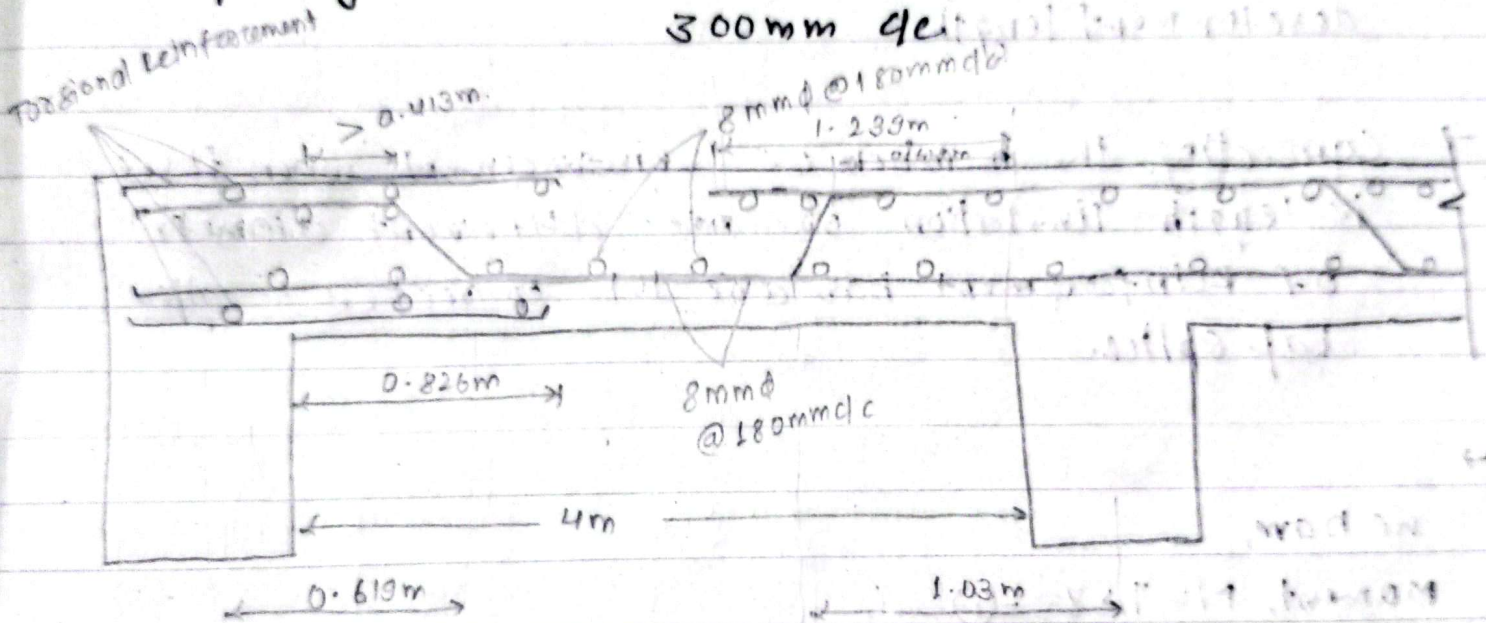 300mm c/c
Torsional Reinforcement
> 0.413m.
8mmφ @180mmc/c
1.239m
0.826m
8mmφ
@180mmc/c
4m
0.619m
1.03m